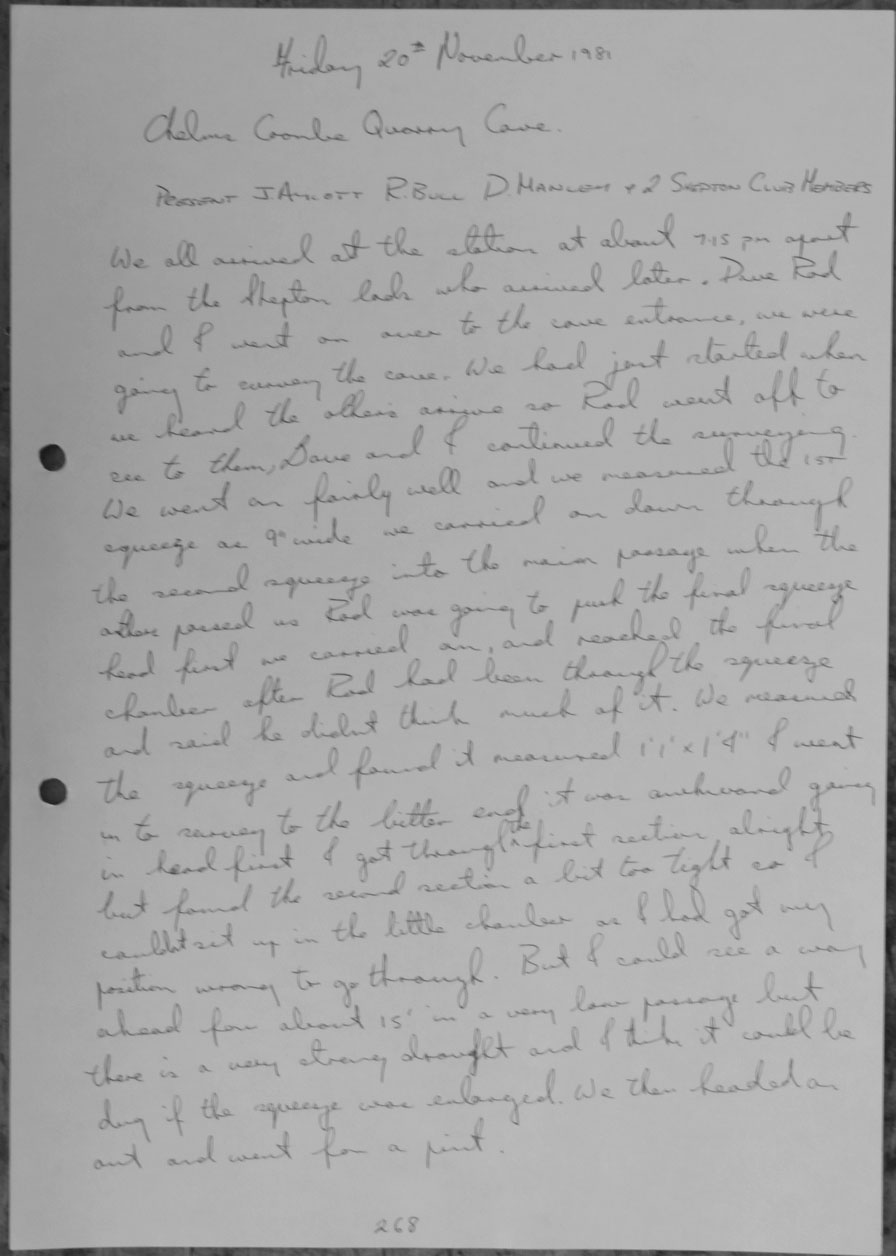 Friday 20th November 1981
Chelms Coombe Quarry Cave.
PRESENT J. AYLOTT R. BULL D. MANLEY + 2 SHEPTON CLUB MEMBERS
We all arrived at the station at about 7.15 pm apart
from the Shepton lads who arrived later. Dave Rod
and I went on over to the cave entrance, we were
going to survey the cave. We had just started when
we heard the others arrive so Rod went off to
see to them, Dave and I continued the surveying.
We went on fairly well and we measured the 1st
squeeze as 9" wide we carried on down through
the second squeeze into the main passage when the
others passed us Rod was going to push the final squeeze
head first we carried on, and reached the final
chamber after Rod had been through the squeeze
and said he didnt think much of it. We measured
the squeeze and found it measured 1'1" x 1'4" I went
in to survey to the bitter end it was awkward going
in head first I got through the first section alright
but found the second section a bit too tight so I
couldnt sit up in the little chamber as I had got my
position wrong to go through. But I could see a way
ahead for about 15' in a very low passage but
there is a very strong draught and I think it could be
dug if the squeeze was enlarged. We then headed on
out and went for a pint.
268